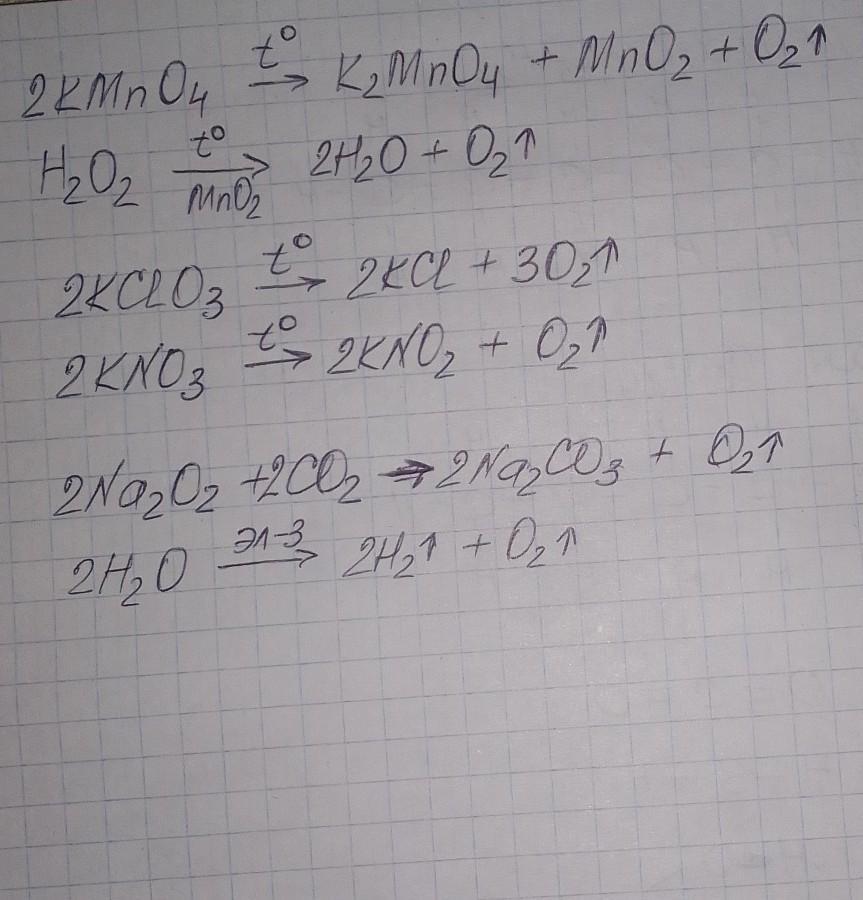 2KMnO₄ t° → K₂MnO₄ + MnO₂ + O₂↑
H₂O₂ t° → MnO₂ 2H₂O + O₂↑
2KClO₃ t° → 2KCl + 3O₂↑
2KNO₃ t° → 2KNO₂ + O₂↑
2Na₂O₂ +2CO₂ → 2Na₂CO₃ + O₂↑
2H₂O эл-з → 2H₂↑ + O₂↑